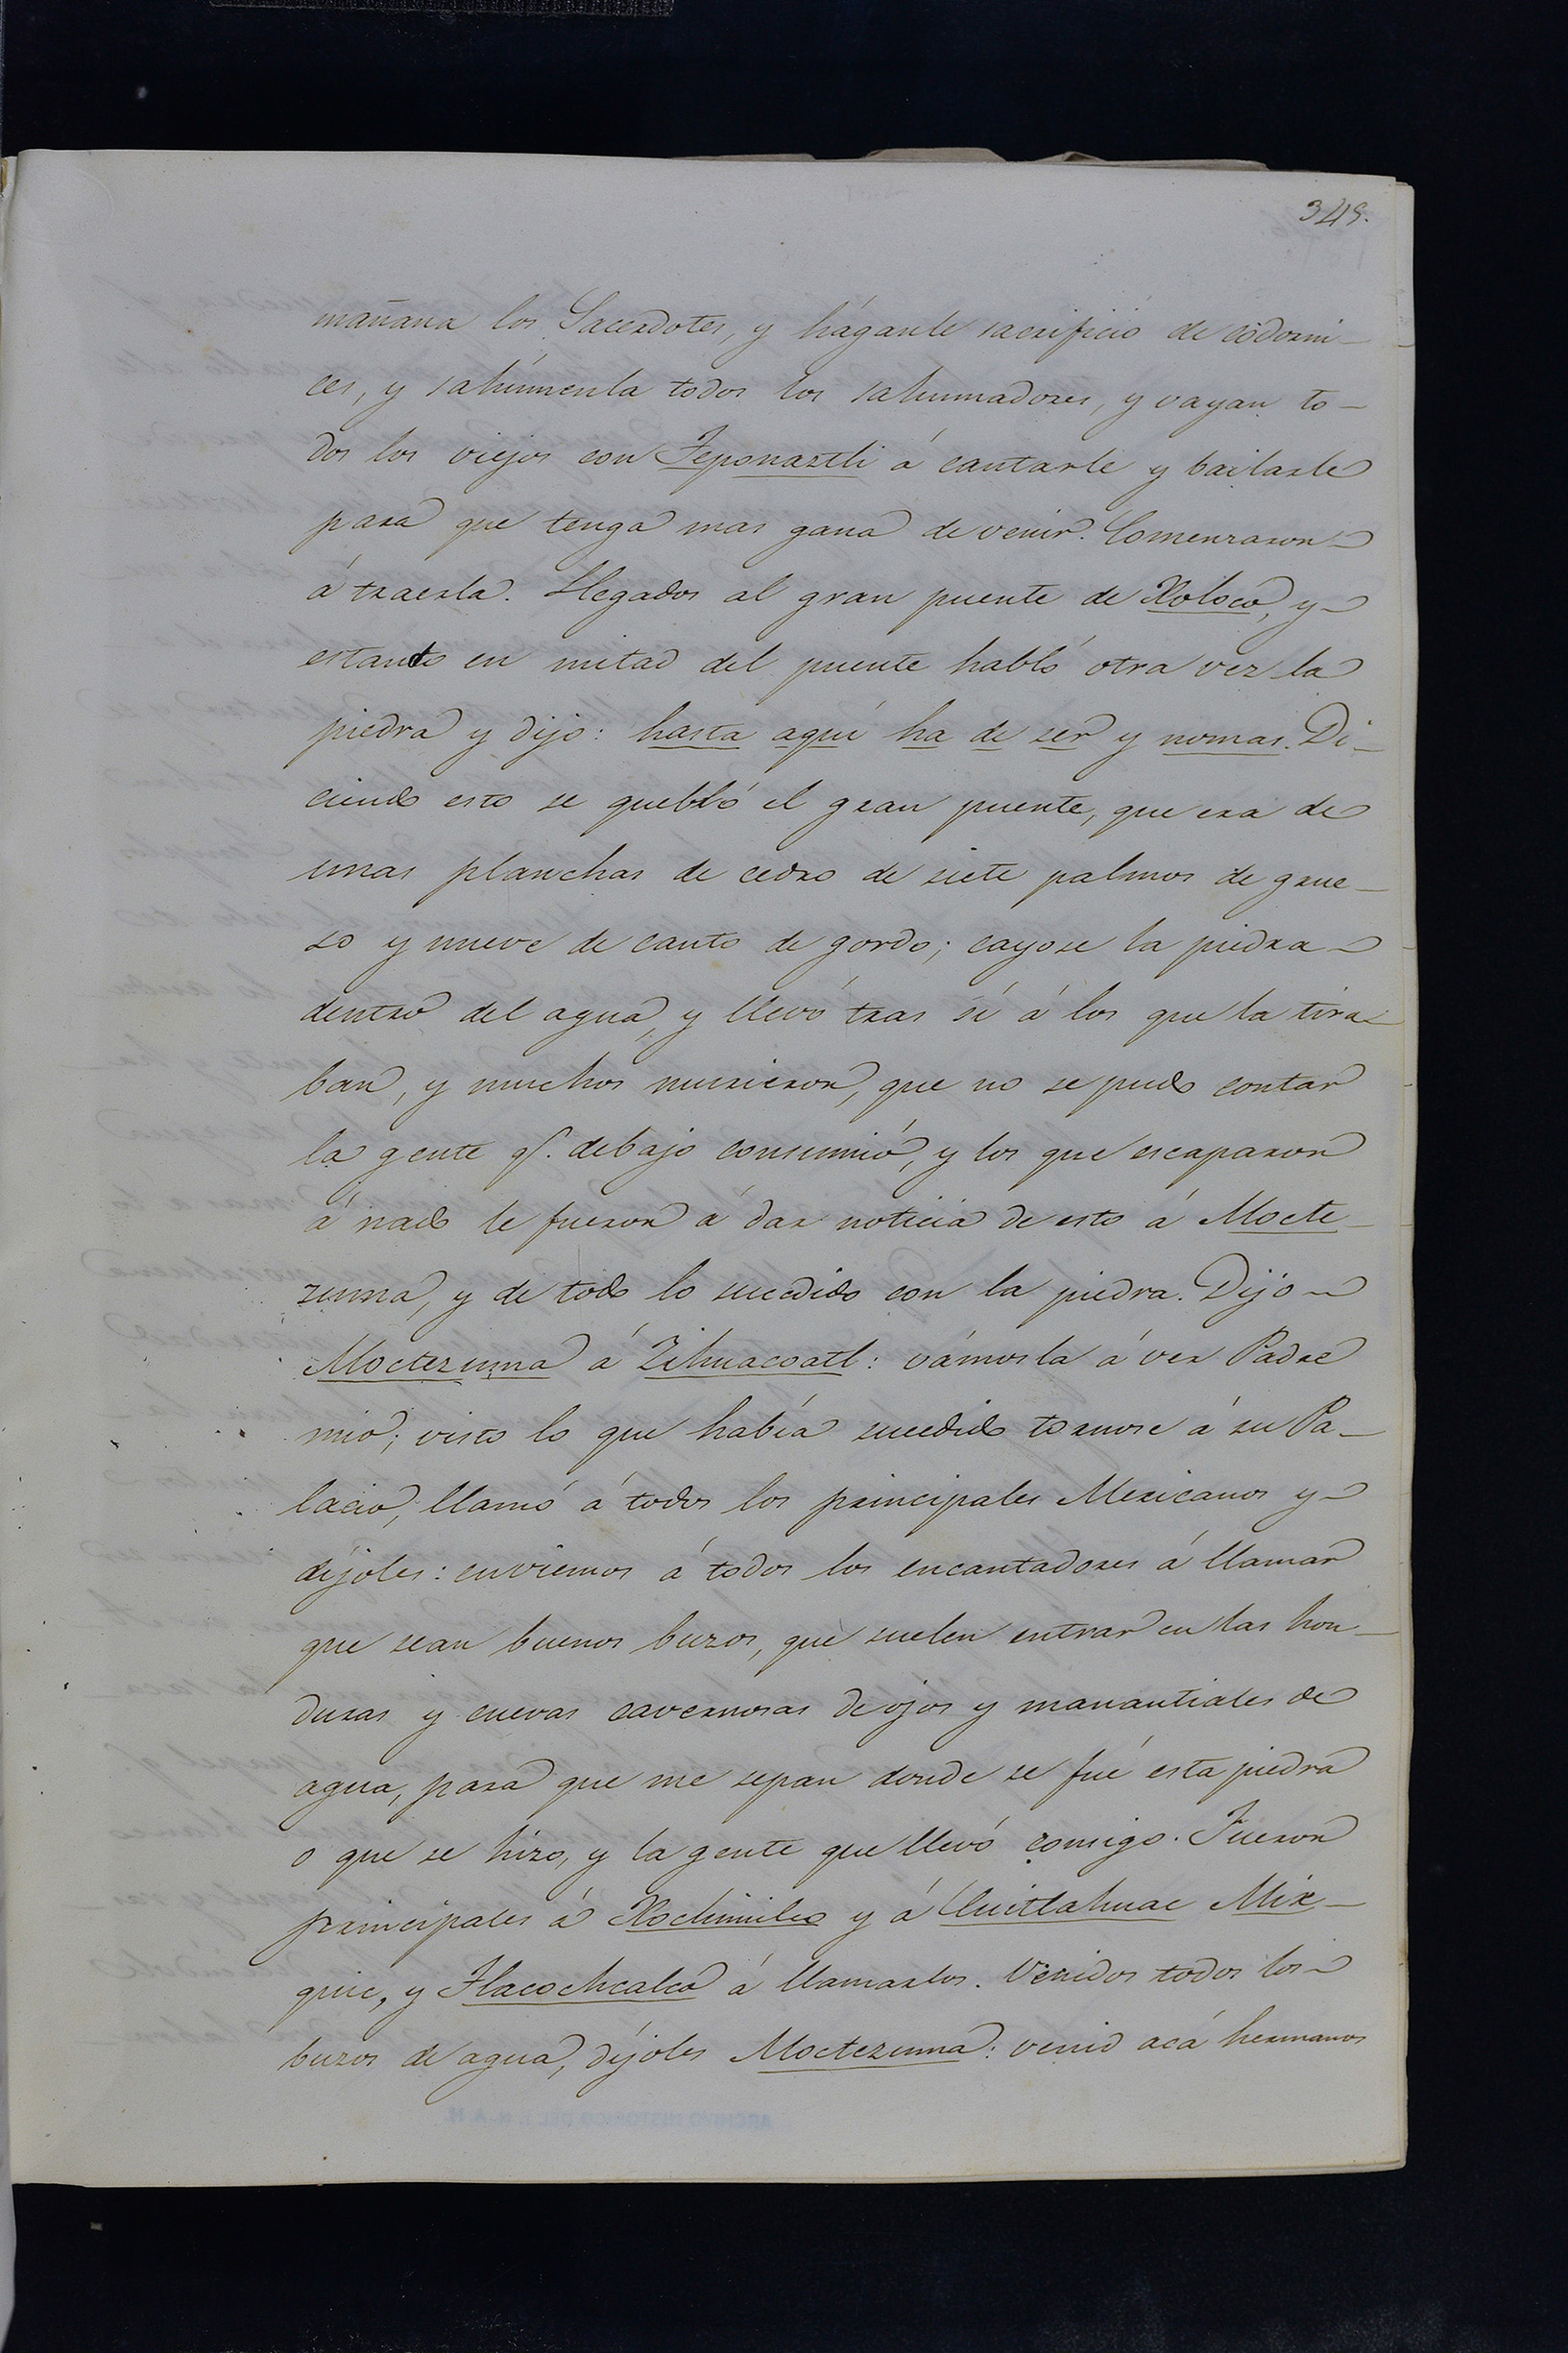 349.
mañana los Sacerdotes, y háganle sacrificio de codorni-
ces, y sahúmenla todos los sahumadores, y vayan to-
dos los viejos con Teponaztli á cantarle y bailarle
para que tenga mas gana de venir. Comenzaron
á traerla. Llegados al gran puente de Xoloco, y
estando en mitad del puente habló otra vez la
piedra y dijo: hasta aquí ha de ser y nomas. Di-
ciendo esto se quebló el gran puente, que era de
unas planchas de cedro de siete palmos de grue-
so y nueve de canto de gordo; cayose la piedra
dentro del agua, y llevó tras sí á los que la tira-
ban, y muchos murieron, que no se pudo contar
la gente q.e debajo consumió, y los que escaparon
á nado le fueron á dar noticia de esto á Mocte-
zuma, y de todo lo sucedido con la piedra. Dijo
Moctezuma á Zihuacoatl: vámosla á ver Padre
mio; visto lo que había sucedido tornose á su Pa-
lacio, llamó á todos los principales Mexicanos y
díjoles: enviemos á todos los encantadores á llamar
que sean buenos buzos, que suelen entrar en las hon-
duras y cuevas cavernosas de ojos y manantiales de
agua, para que me sepan donde se fué esta piedra
o que se hizo, y la gente que llevó consigo. Fueron
principales á Xochimilco y á Cuitlahuac Mix-
quic, y Tlacochcalco á llamarlos. Venidos todos los
buzos de agua, díjoles Moctezuma: venid acá hermanos
ARCHIVO HISTORICO DEL I. N. A. H.